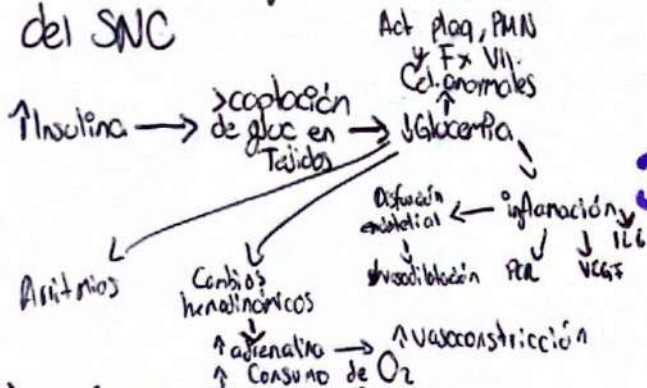 del SNC
Act plaq, PMN
y Fx VII.
Cel. anormales
↑Insulina → >captación
de gluc en
Tejidos
→ ↓Glucemia
Disfunción
endotelial
← inflamación
↓vasodilatación
PCR
VEGF
IL6
Arritmias
Cambios
hemodinámicos
↑ adrenalina → ↑vasoconstricción
↑ Consumo de O2